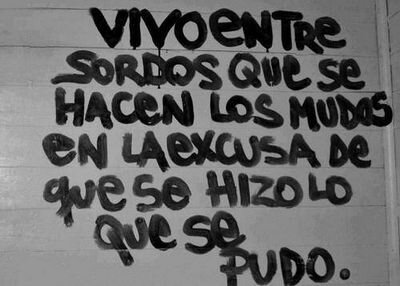 VIVO ENTRE
SORDOS QUE SE
HACEN LOS MUDOS
EN LA EXCUSA DE
QUE SE HIZO LO
QUE SE
PUDO.